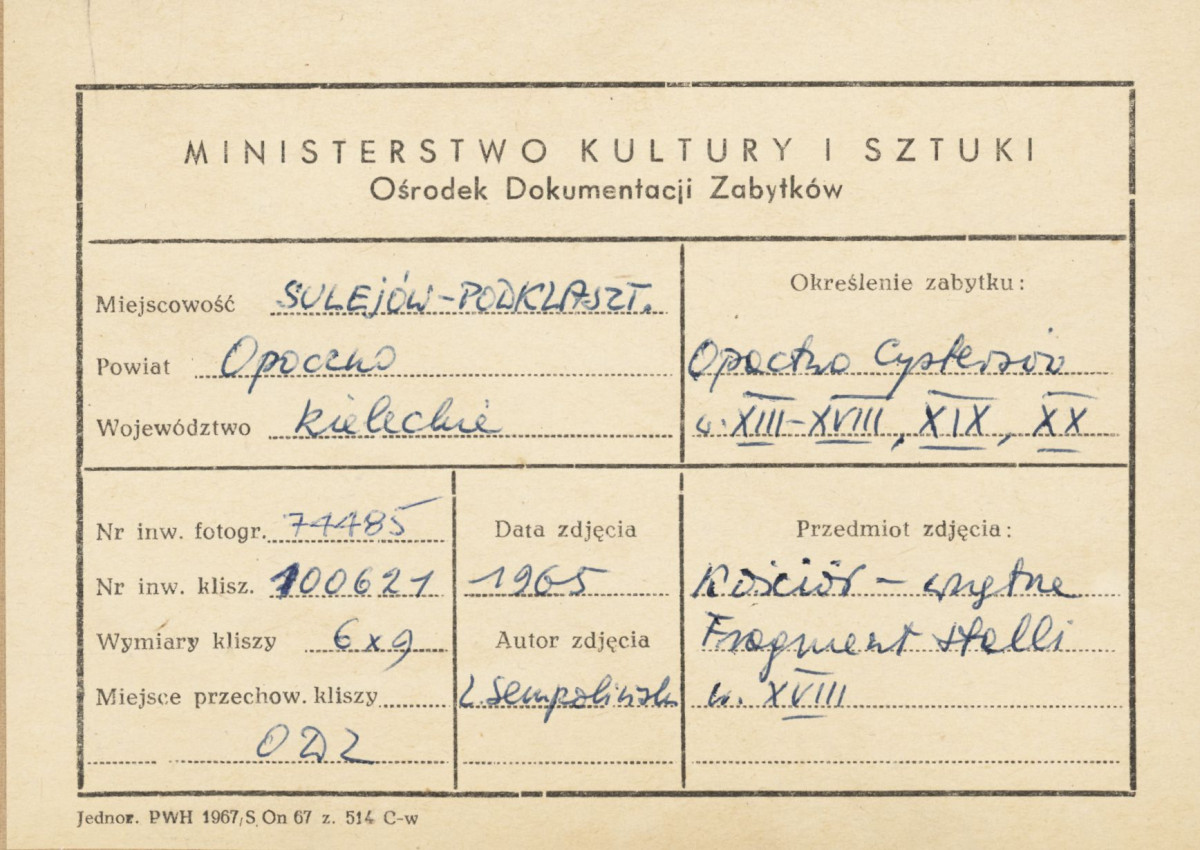 MINISTERSTWO KULTURY I SZTUKI
Ośrodek Dokumentacji Zabytków
Miejscowość SULEJÓW-PODKLASZT.
Powiat Opoczno
Województwo kieleckie
Określenie zabytku:
Opactwo Cystersów
w. XIII-XVIII, XIX, XX
Nr inw. fotogr. 74485
Nr inw. klisz. 100621
Wymiary kliszy 6x9
Miejsce przechow. kliszy
ODZ
Data zdjęcia
1965
Autor zdjęcia
L. Sempoliński
Przedmiot zdjęcia:
Kościół - wnętrze
Fragment stalli
w. XVIII
Jednor. PWH 1967/S. On 67 z. 514 C-w